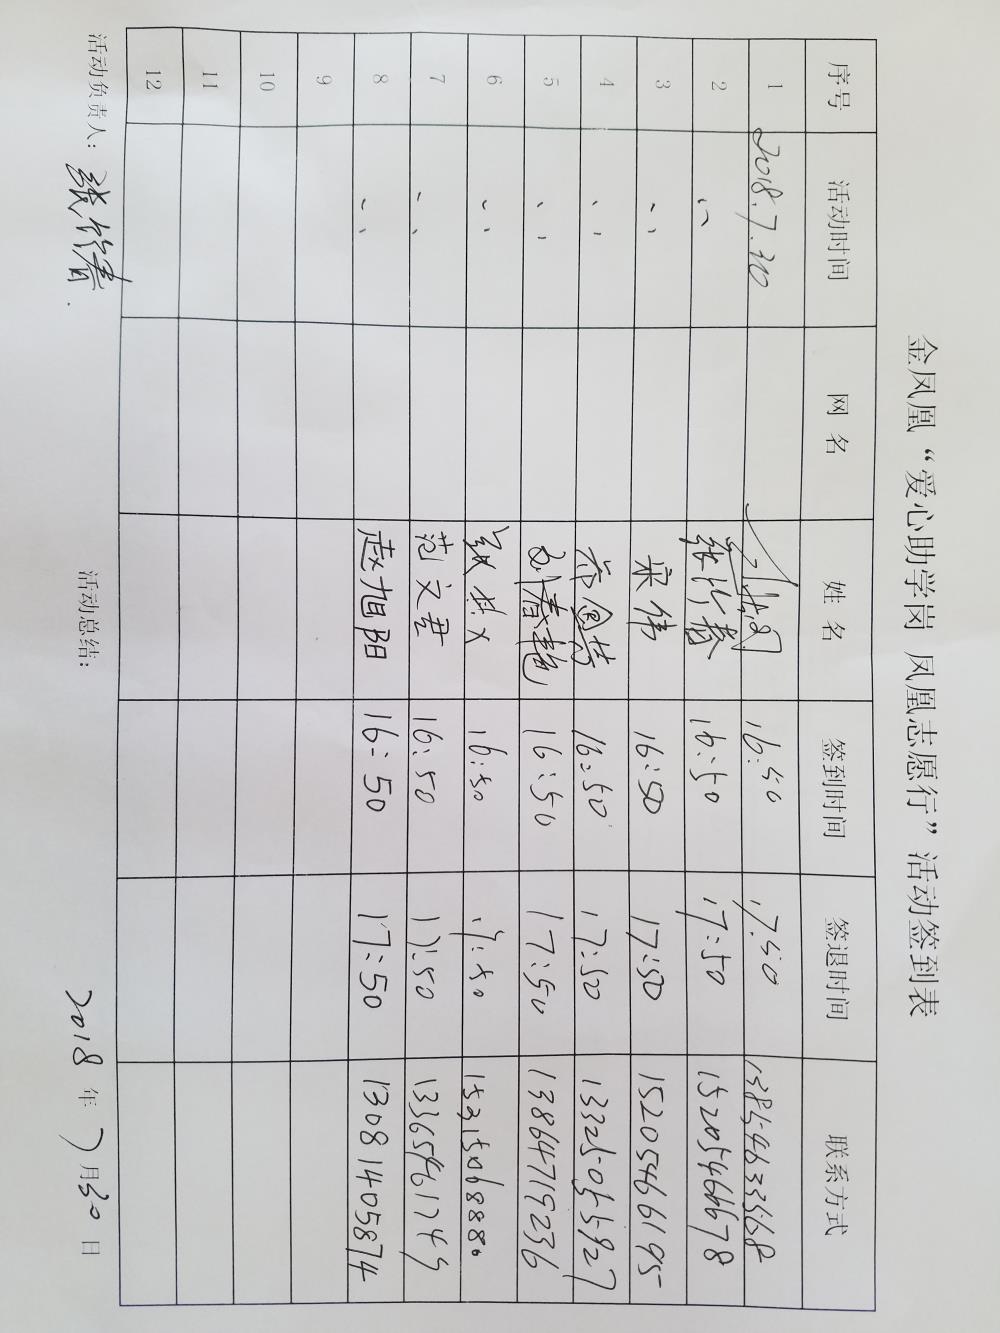 金凤凰“爱心助学岗 凤凰志愿行”活动签到表
序号 活动时间 网 名 姓 名 签到时间 签退时间 联系方式
1 2018.7.30 16:50 17:50
2 〃 16:50 17:50 15205466678
3 〃 宋伟 16:50 17:50 15205466195
4 〃 16:50 17:50 13325055927
5 〃 刘春艳 16:50 17:50 13864719236
6 〃 16:50 17:50 15315068880
7 〃 范文君 16:50 17:50 13365461749
8 〃 赵旭阳 16:50 17:50 13081405874
9
10
11
12
活动负责人: 活动总结: 2018 年 7 月 30 日